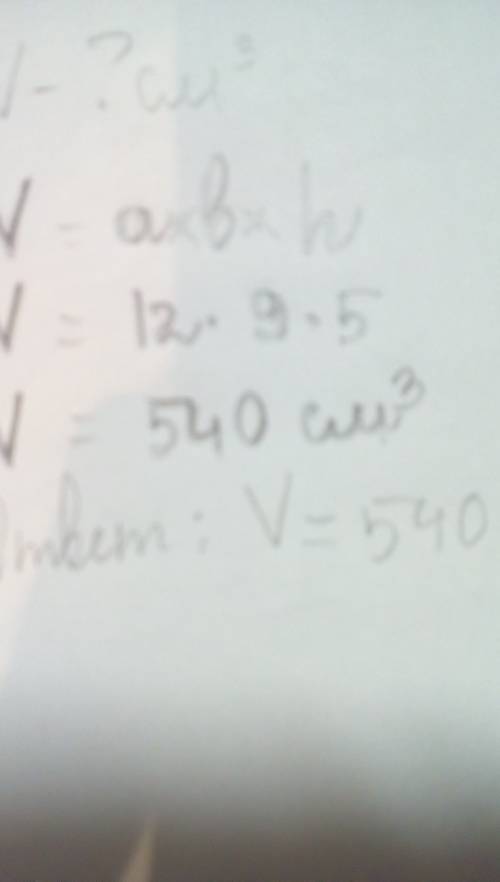 V - ? см³
V = a × b × h
V = 12 · 9 · 5
V = 540 см³
Ответ: V = 540